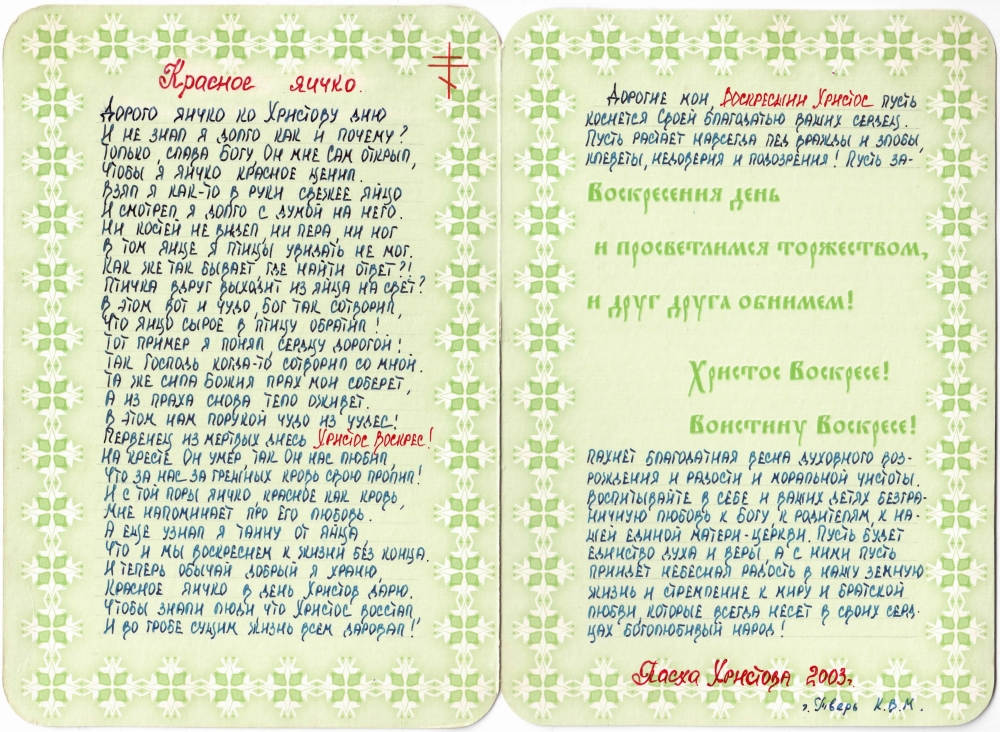 Красное яичко.
Дорого яичко ко Христову дню
И не знал я долго как и почему?
Только, слава Богу, Он мне Сам открыл,
Чтобы я яичко красное ценил.
Взял я как-то в руки свежее яйцо
И смотрел я долго с думой на него.
Ни костей не видел, ни пера, ни ног
В том яйце я птицы увидать не мог.
Как же так бывает где найти ответ?!
Птичка вдруг выходит из яйца на свет?
В этом вот и чудо, Бог так сотворил,
Что яйцо сырое в птицу обратил!
Тот пример я понял, сердцу дорогой!
Так Господь когда-то, сотворил со мной.
Та же сила Божия прах мой соберет,
А из праха снова тело оживет.
В этом нам порукой чудо из чудес!
Первенец из мертвых днесь Христос Воскрес!
На кресте Он умер, так Он нас любил,
Что за нас за грешных кровь свою пролил!
И с той поры яичко красное как кровь,
Мне напоминает про Его любовь.
А еще узнал я тайну от яйца,
Что и мы воскреснем к жизни без конца.
И теперь обычай добрый я храню,
Красное яичко в день Христов дарю.
Чтобы знали люди что Христос восстал
И во гробе сущим жизнь всем даровал!
Дорогие мои, Воскресший Христос пусть
коснется Своей благодатью ваших сердец.
Пусть растает навсегда лед вражды и злобы,
клеветы, недоверия и подозрения! Пусть за-
Воскресения день
и просветлимся торжеством,
и друг друга обнимем!
Христос Воскресе!
Воистину Воскресе!
пахнет благодатная весна духовного воз-
рождения и радости и моральной чистоты.
Воспитывайте в себе и ваших детях безгра-
ничную любовь к Богу, к родителям, к на-
шей единой матери-церкви. Пусть будет
единство духа и веры, а с ними пусть
приидет небесная радость в нашу земную
жизнь и стремление к миру и братской
любви, которые всегда несет в своих серд-
цах боголюбивый народ!
Пасха Христова 2003г.
г. Тверь К.В.М.